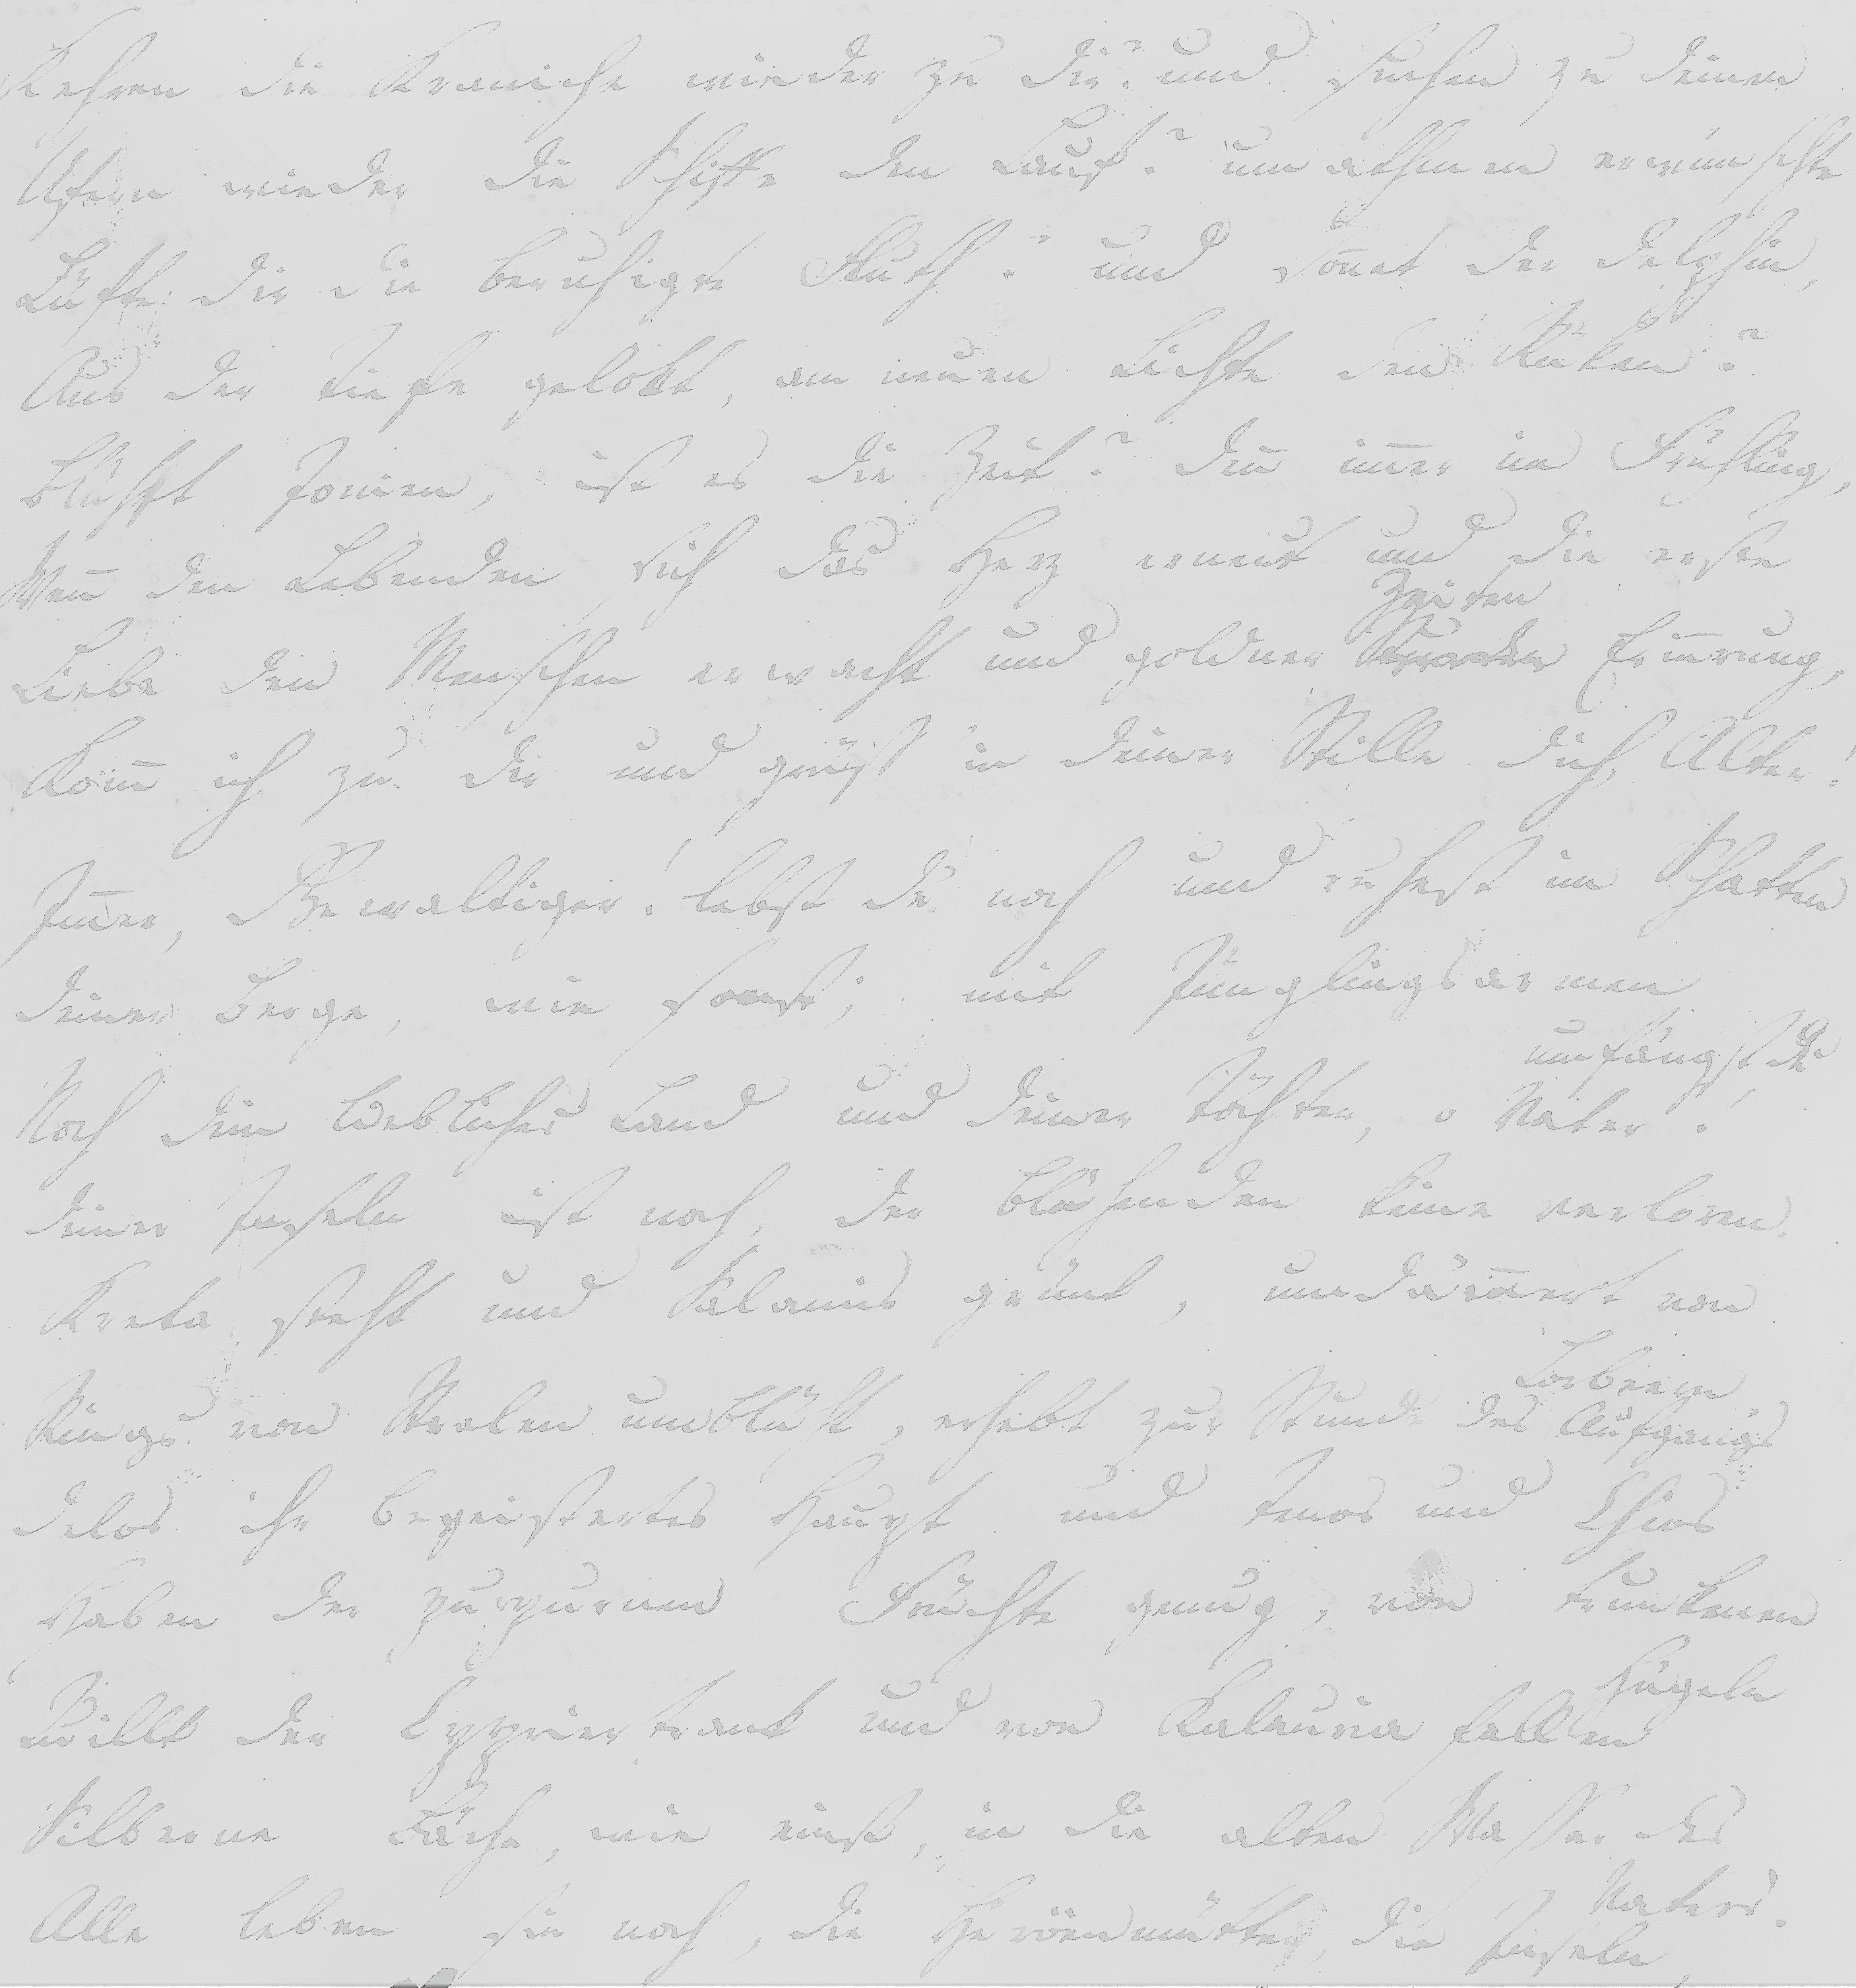 Kehren die Kraniche wieder zu dir? und suchen zu deinen
Ufern wieder die Schiffe den Lauf? umathmen erwünschte
Lüfte dir die beruhigte Fluth? und sonnet der Delphin,
Aus der Tiefe gelokt, am neuen Lichte den Rüken?
Blüht Ionien, ist es die Zeit? den̅ im̅er im Frühling,
Wen̅ den Lebenden sich das Herz erneut und die erste
Zeiten
Liebe den Menschen erwacht und goldner Erin̅rung,
Kom̅ ich zu dir und grüß in deiner Stille dich, Alter!
Im̅er, Gewaltiger! lebst du noch und ruhest im Schatten
Deiner Berge, wie sonst; mit Jünglingsarmen
umfängst du
Noch dein liebliches Land und deiner Töchter, o Vater!
Deiner Inseln ist noch, der blühenden keine verloren.
Kreta steht und Salamis grünt, umdäm̅ert von
Lorbeern,
Rings von Stralen umblüht, erhebt zur Stunde des Aufgangs
Delos ihr begeistertes Haupt und Tenos und Chios
Haben der purpurnen Früchte genug, von trunkenen
Hügeln
Quillt der Cypriertrank und von Kalauria fallen
Silberne Bäche, wie einst, in die alten Wasser des
Vaters.
Alle leben sie noch, die Heroënmütter, die Inseln,